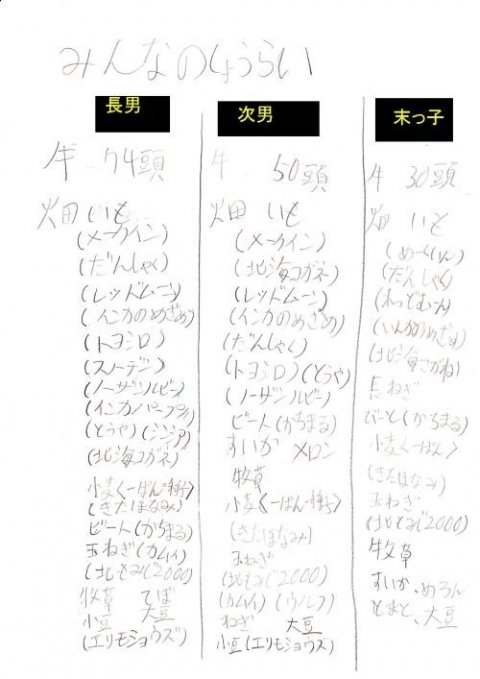 みんなのしょうらい
長男
牛 74頭
畑 いも
(メークイン)
(だんしゃく)
(レッドムーン)
(インカのめざめ)
(トヨシロ)
(スノーデン)
(ノーザンルビー)
(インカパープル)
(とうや)(シンシア)
(北海コガネ)
小麦<一ぱん・種子>
(きたほなみ)
ビート(かちまる)
玉ねぎ(カムイ)
(北もみじ2000)
牧草 てぼ
小豆 大豆
(エリモショウズ)
次男
牛 50頭
畑 いも
(メークイン)
(北海コガネ)
(レッドムーン)
(インカのめざめ)
(だんしゃく)
(トヨシロ)(とうや)
(ノーザンルビー)
ビート(かちまる)
すいか メロン
牧草
小麦<一ぱん・種子>
(きたほなみ)
玉ねぎ
(北もみじ2000)
(カムイ)(ウルフ)
ねぎ 大豆
小豆(エリモショウズ)
末っ子
牛 30頭
畑 いも
(めーくいん)
(だんしゃく)
(れっどむーん)
(いんかのめざめ)
(北海こがね)
長ねぎ
びーと(かちまる)
小麦<一ぱん>
(きたほなみ)
玉ねぎ
(北もみじ2000)
牧草
すいか、めろん
とまと、大豆